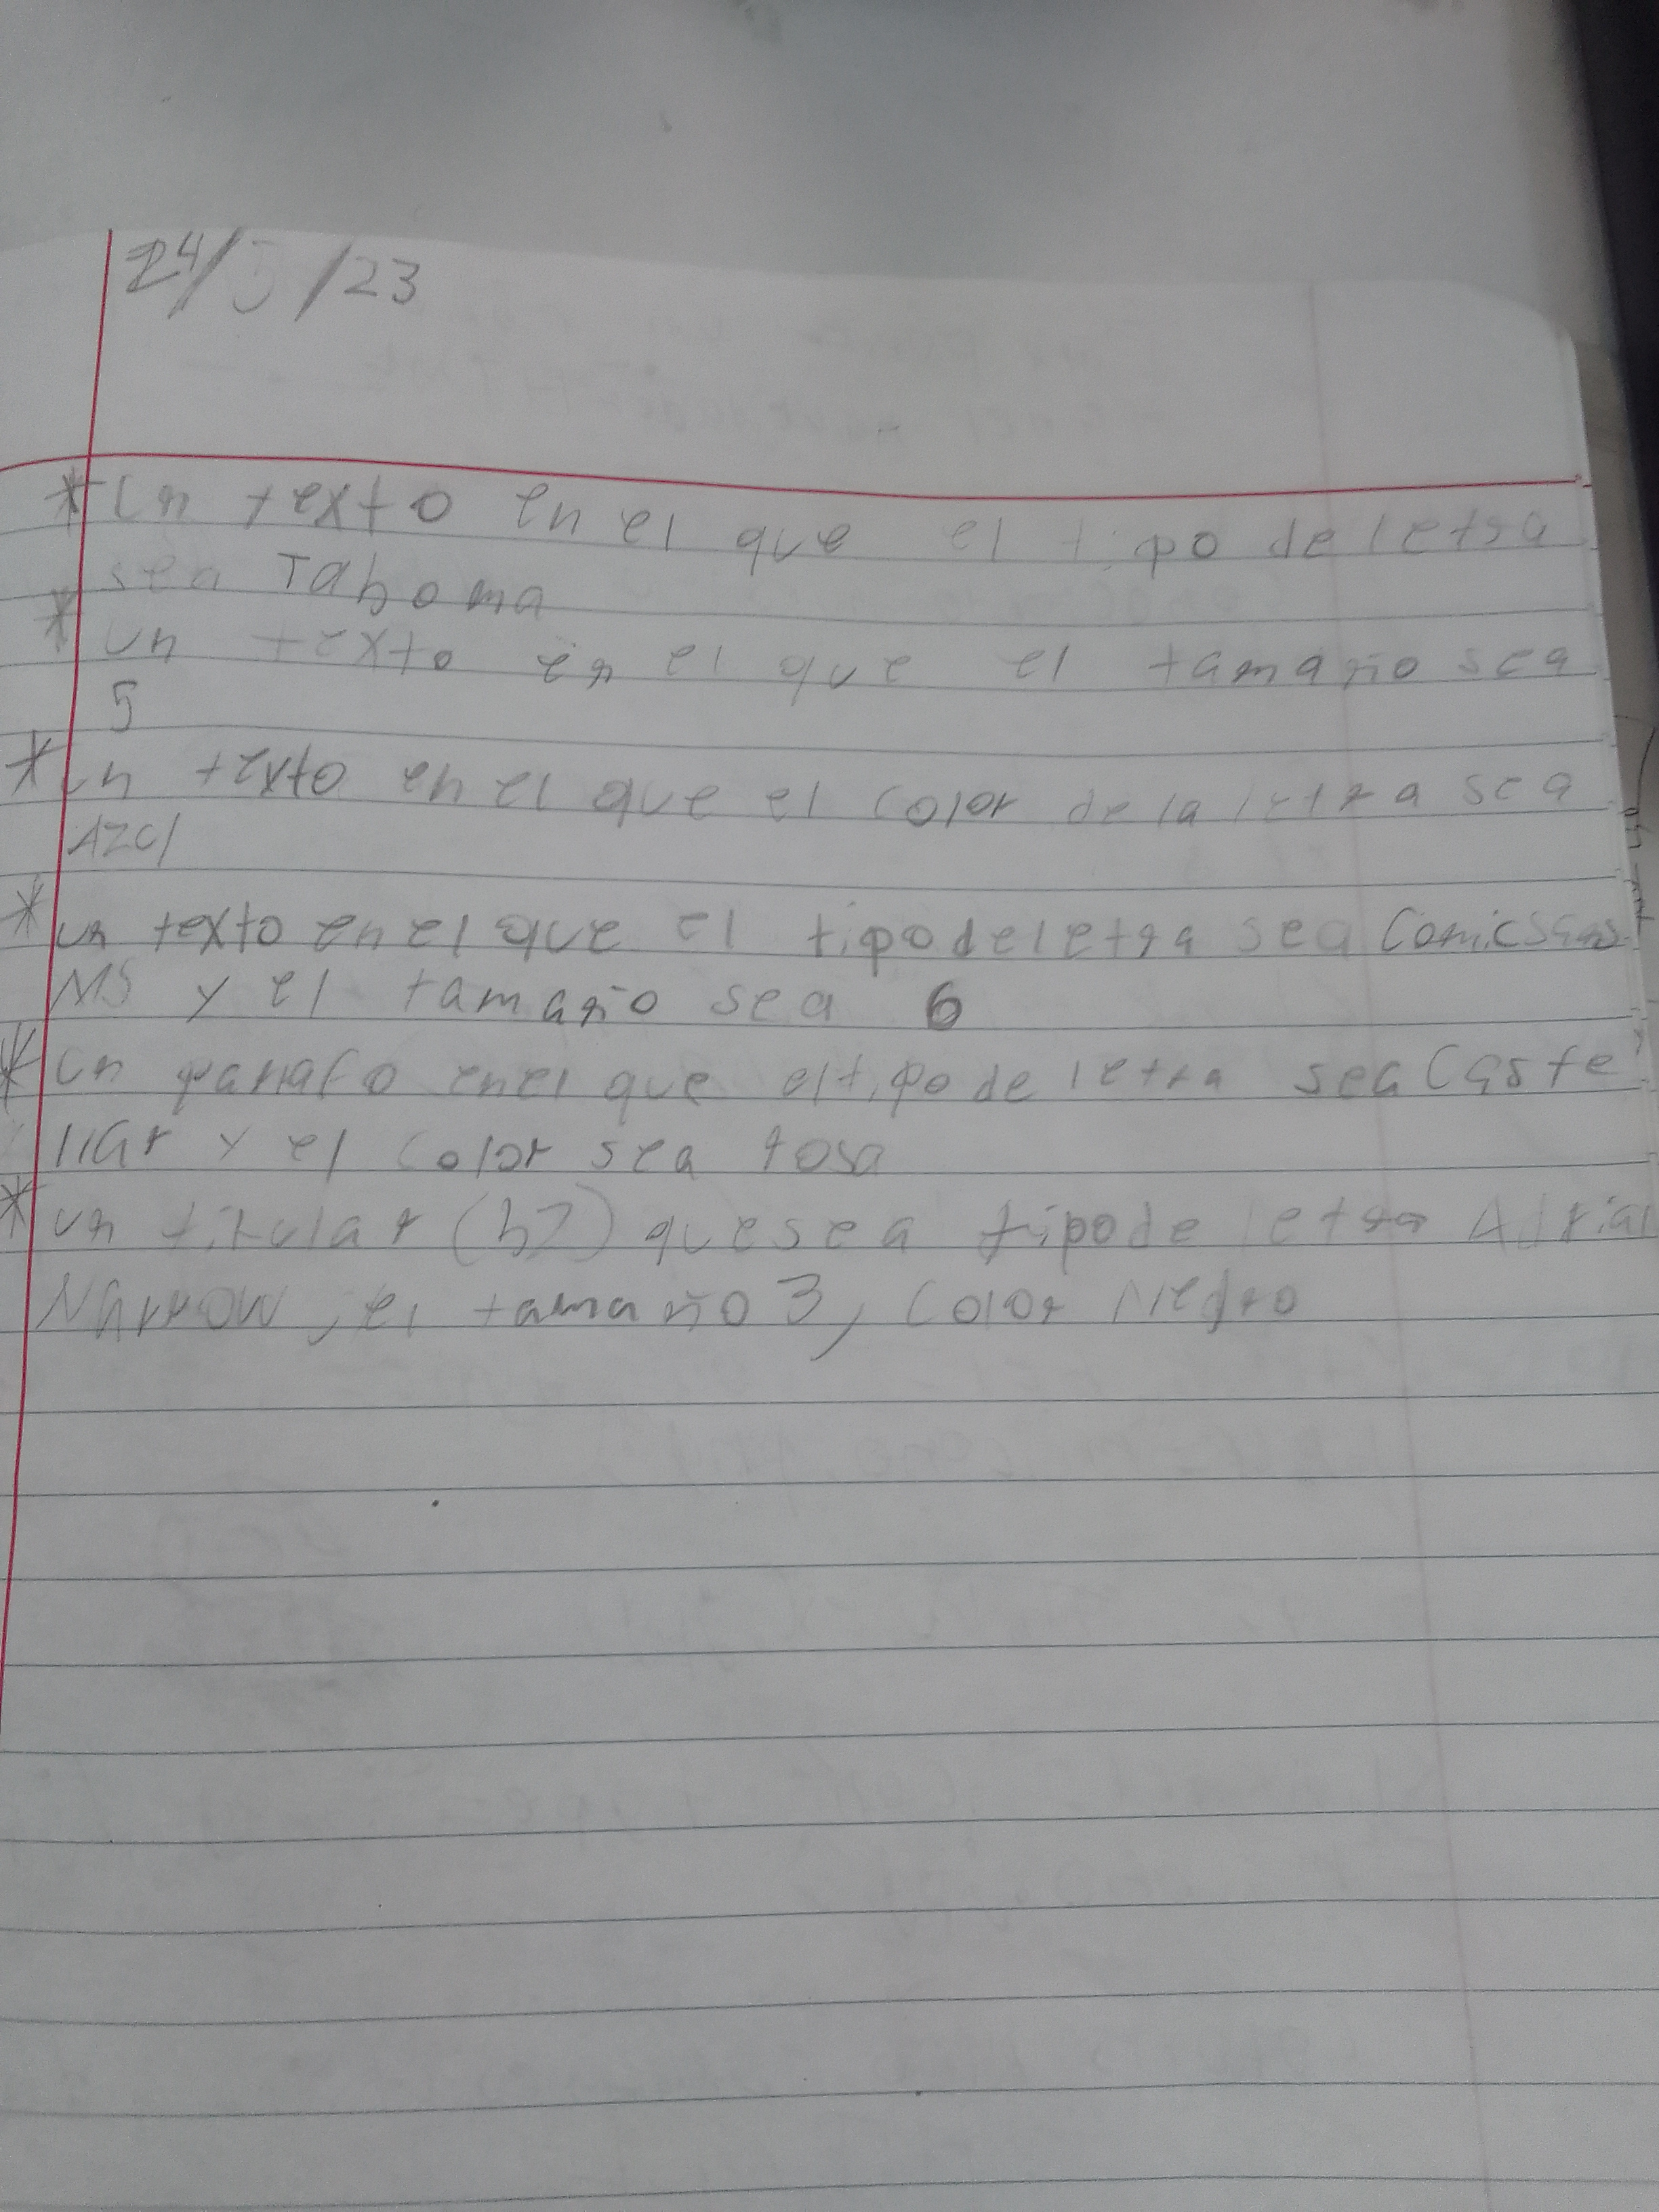 24/5/23
* Un texto en el que el tipo de letra
sea Tahoma
* un texto en el que el tamaño sea
5
* un texto en el que el color de la letra sea
Azul
* un texto en el que el tipo de letra sea Comic Sans
MS y el tamaño sea 6
* Un parrafo en el que el tipo de letra sea Caste
llar y el color sea rosa
* un titular (h2) que sea tipo de letra Adrial
Narrow, el tamaño 3, color Negro